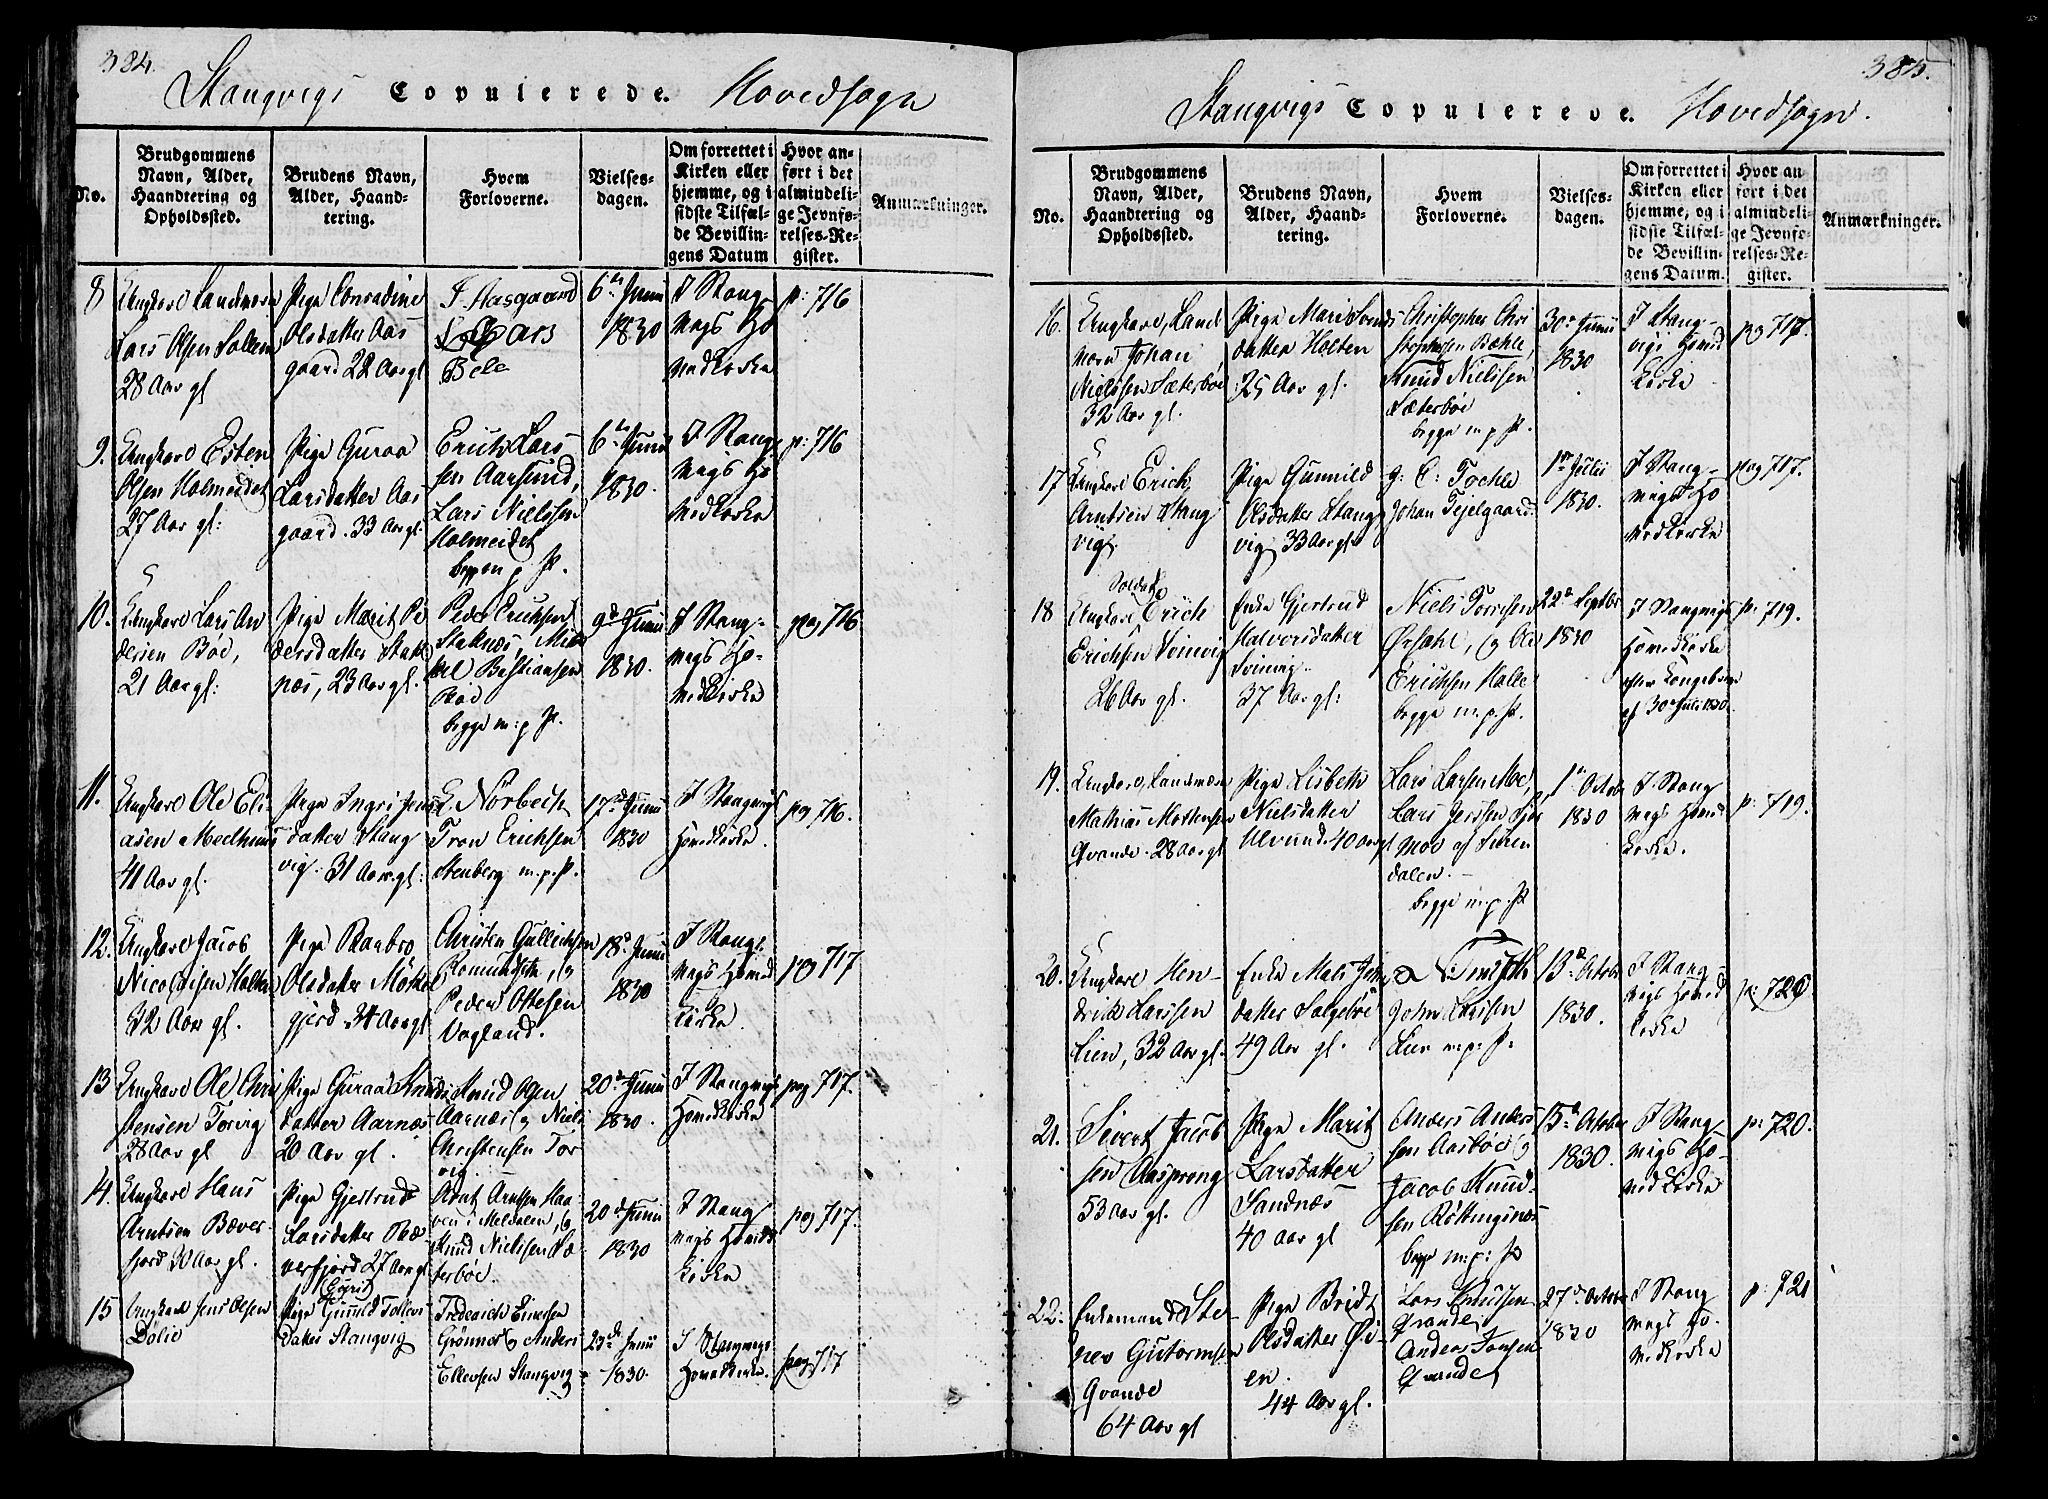 384.
Stangvigs Copulerede. Hovedsogn
No.
Brudgommens Navn, Alder, Haandtering og Opholdssted.
Brudens Navn, Alder, Haandtering.
Hvem Forloverne.
Vielses-dagen.
Om forrettet i Kirken eller hjemme, og i sidste Tilfælde Bevillingens Datum
Hvor anført i det almindelige Jevnførelses-Register.
Anmærkninger.
8
Ungkarl Landværn
Lars Olsen Solem
28 Aar gl
Pige Conradine
Olsdatter Aas
gaard 22 Aar gl
F. Aasgaard
Lars
Bele
6te Junii
1830
I Stang
vigs Ho
vedkirke
p: 716
9.
Ungkarl Esten
Olsen Holmeidet
27 Aar gl:
Pige Guraa
Larsdatter Aas
gaard. 33 Aar gl
Erich Lars
sen Aarsund,
Lars Nielssen
Holmeidet
begge m p P.
6te Junii
1830.
I Stang
vigs Ho
vedkirke
p: 716
10.
Ungkarl Lars An
dersen Böe,
21 Aar gl:
Pige Marit Pe
dersdatter Stak
næs, 23 Aar gl.
Peder Erichsen
Staknæs, Mik
kel Bastiansen
Böe
begge m: p P.
9de Junii
1830.
I Stang-
vigs Ho-
vedkirke
pag 716
11.
Ungkarl Ole Eli-
asen Melhuus
41 Aar gl.
Pige Ingri Jens
datter Stang
vig. 31 Aar gl:
E. Norbech
Tron Erichsen
Stenberg m. p. P.
17de Junii
1830
I Stangvigs
Hovedkirke.
pag 716.
12.
Ungkarl Jacob
Nicolaisen Holten
32 Aar gl.
Pige Barbro
Olsdatter Mökel
gjerd 34 Aar gl
Christen Gullichsen
Romundset, og
Peder Ottesen
Vagland.
18de Junii
1830
I Stang-
vigs Hoved
kirke.
pag 717
13
Ungkarl Ole Chri
stensen Torvig
28 Aar gl
Pige Guraa Knuds
datter Aarnæs
20 Aar gl.
Knud Olsen
Aarnæs og Niels
Christensen Tor
vig.
20de Junii
1830.
I Stangvigs
Hovedkirke
pag 717.
14.
Ungkarl Hans
Arntsen Bæver-
fjord 30 Aar gl.
Pige Gjertrud
Larsdatter Bæ-
verfjord 27 Aar gl
Arnt Arntsen Haa-
ven i Meldalen, og
Knud Nielssen Sæ
terböe.
20de Junii
1830
I Stang
vigs Hoved
kirke
pag 717.
15
Ungkarl Jens Olsen
Dölie
(Guri)
Pige Gunild Tollevs
datter Stangvig
Frederich Einersen
Grönnes og Anders
Ellevsen Stangvig
23de Junii
1830.
I Stangvigs
Hovedkirke.
pag 717
385.
Stangvigs Copulerede. Hovedsogn.
No.
Brudgommens Navn, Alder, Haandtering og Opholdssted.
Brudens Navn, Alder, Haandtering.
Hvem Forloverne.
Vielses-dagen.
Om forrettet i Kirken eller hjemme, og i sidste Tilfælde Bevillingens Datum.
Hvor anført i det almindelige Jevnførelses-Register.
Anmærkninger.
16.
Ungkarl, Land
værn Johan
Nielssen Sæterböe
32 Aar gl.
Pige Mari Svends
datter Holten
25 Aar gl.
Christopher Chri
stophersen Bæhle,
Knud Nielssen
Sæterböe
begge m. p. P.
30te Junii
1830
I Stang-
vigs Hoved
kirke
pag 717.
17
Ungkarl Erich
Arntsen Stang
vig.
Pige Gunnild
Olsdatter Stang
vig 33 Aar gl
G: C: Tochle
Johan Fejelgaard.
1ste Julii
1830.
I Stang-
vigs Ho
vedkirke
pag 717.
18
Soldat
Ungkarl Erich
Erichsen Svinvig
26 Aar gl.
Enke Gjertrud
Halvorsdatter
Svinvig.
37 Aar gl:
Niels Torresen
Örsahl, og Ole
Erichsen Halle
begge m. p. P.
22de Septbr
1830
I Stangvigs
Hovedkirke
efter Kongebrev
af 30te Juli 1830.
p: 719.
19.
Ungkarl, Landværn
Mathias Mortensen
Qvande. 28 Aar gl
Pige Lisbeth
Nielsdatter
Ulvund. 40 Aar gl
Lars Larsen Moe,
Lars Jerssen
Moe af Suren
dalen. -
begge m. p. P
1ste Octobr
1830
I Stang
vigs Hoved
kirke.
p: 719.
20.
Ungkarl Hen-
drik Larssen
Lien, 32 Aar gl.
Enke Mali John
datter Solgeböe
49 Aar gl.
N. Smith
John Larssen
Lien m: p: P:
13de Octobr
1830.
I Stang-
vigs Hoved
kirke
p: 720.
21.
Sivert Jacob
sen Aasprong
53 Aar gl.
Pige Marit
Larsdatter
Sandnæs
40 Aar gl
Anders Anders
sen Aasböe og
Jacob Knud-
sen Röttingsnæs
begge m: p: P
15de Octobr
1830.
I Stang-
vigs Ho-
vedkirke
p: 720.
22.
Enkemand Ste-
ner Gutormsen
Qvande
64 Aar gl
Pige Bridt
Olsdatter Öi-
en.
44 Aar gl.
Lars Knudsen
Qvande,
Anders Jonsen
Qvande
27de Octobr
1830
I Stang
vigs Ho-
vedkirke
p: 721